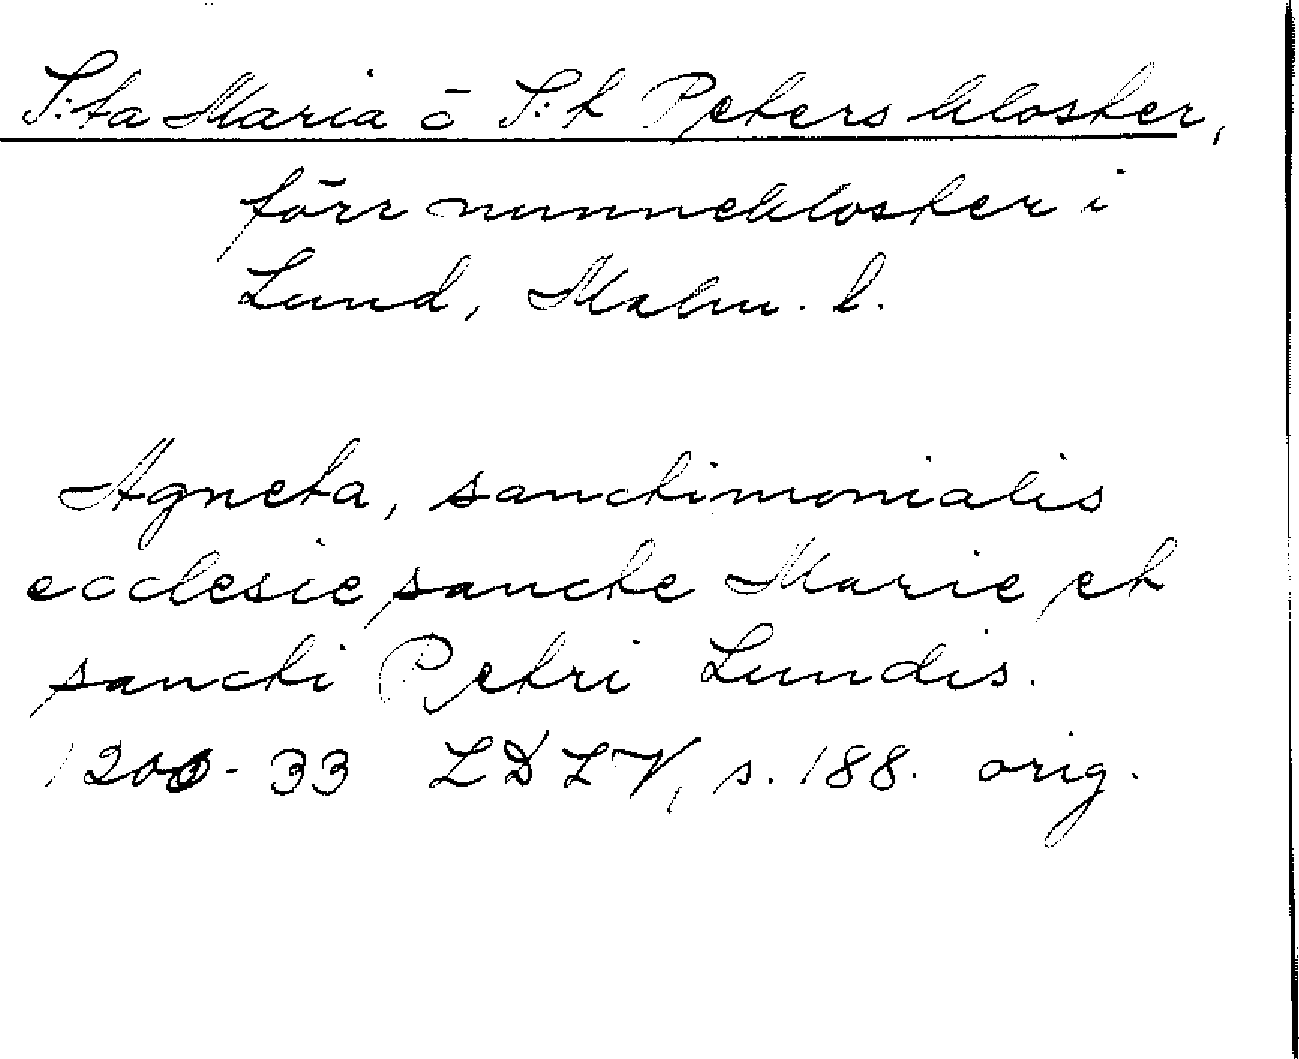 S:ta Maria o S:t Peters kloster,
förr nunnekloster i
Lund, Malm. l.
Agneta, sanctimonialis
ecclesie sancte Marie et
sancti Petri Lundis.
1200-33 LDLV, s. 188. orig.